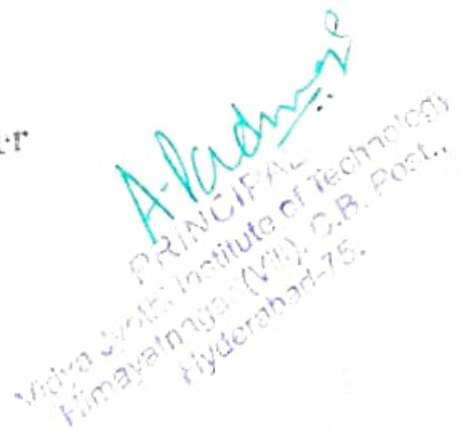 er
A. Padmaja
PRINCIPAL
Vidya Jyothi Institute of Technology
Himayatnagar (Vill), C.B. Post.,
Hyderabad-75.